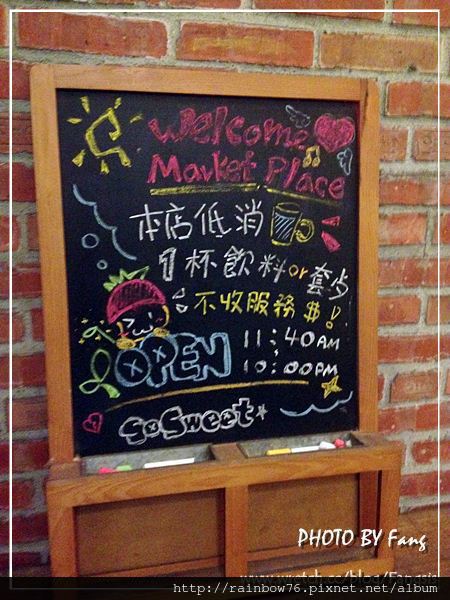 Welcome
Market Place
本店低消
1杯飲料or套
不收服務$!
OPEN
11:40AM
10:00PM
SoSweet
PHOTO BY Fang
http://rainbow76.pixnet.net/album